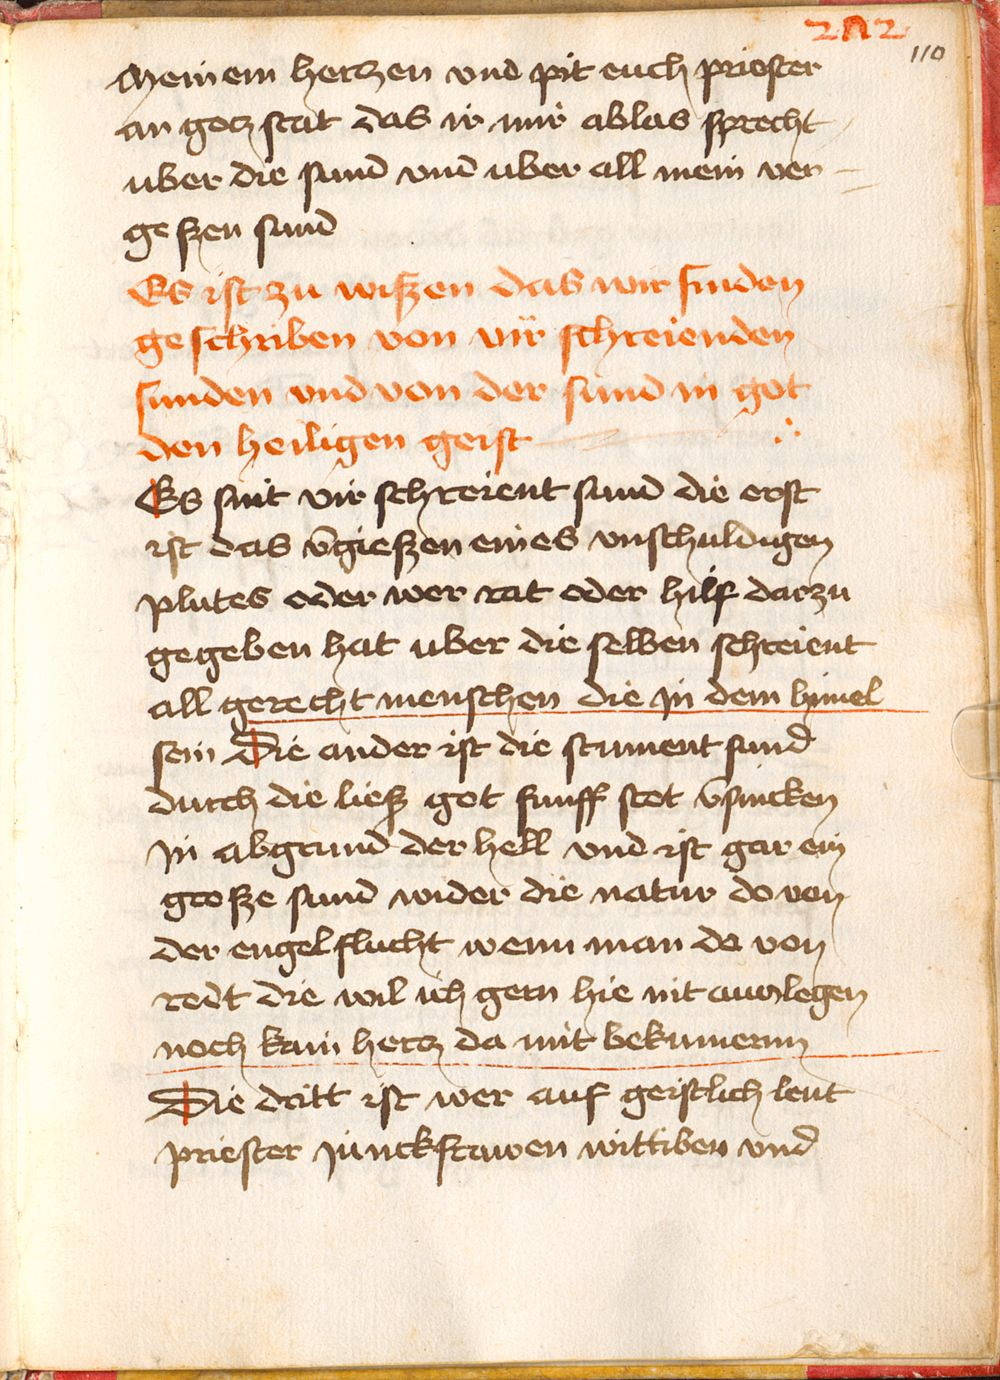 2A2
110
Meinem hertzen vnd pit euch priester
an gotz stat das ir mir ablas sprecht
uber die sund vnd uber all mein ver=
geßen sund
Es ist zu wißen das wir finden
geschriben von vir schreienden
sunden vnd von der sund in got
den heiligen geist
Es sint vir schreient sund die erst
ist das v̄gießen eines vnschuldigen
plutes oder wer rat oder hilf darzu
gegeben hat uber die selben schreient
all gerecht menschen die in dem himel
sein Die ander ist die stument sund
durch die ließ got funff stet v̄sincken
in abgrund der hell vnd ist gar ein
große sund wider die natur do von
der engel flucht wenn man da von
redt die wil ich gern hie nit auslegen
noch kain hertz da mit bekumern
Die dritt ist wer auf geistlich leut
priester junckfrawen wittiben vnd